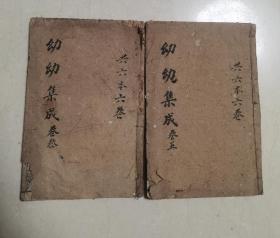 共六本六卷
幼幼集成卷叁
共六本六卷
幼幼集成卷五